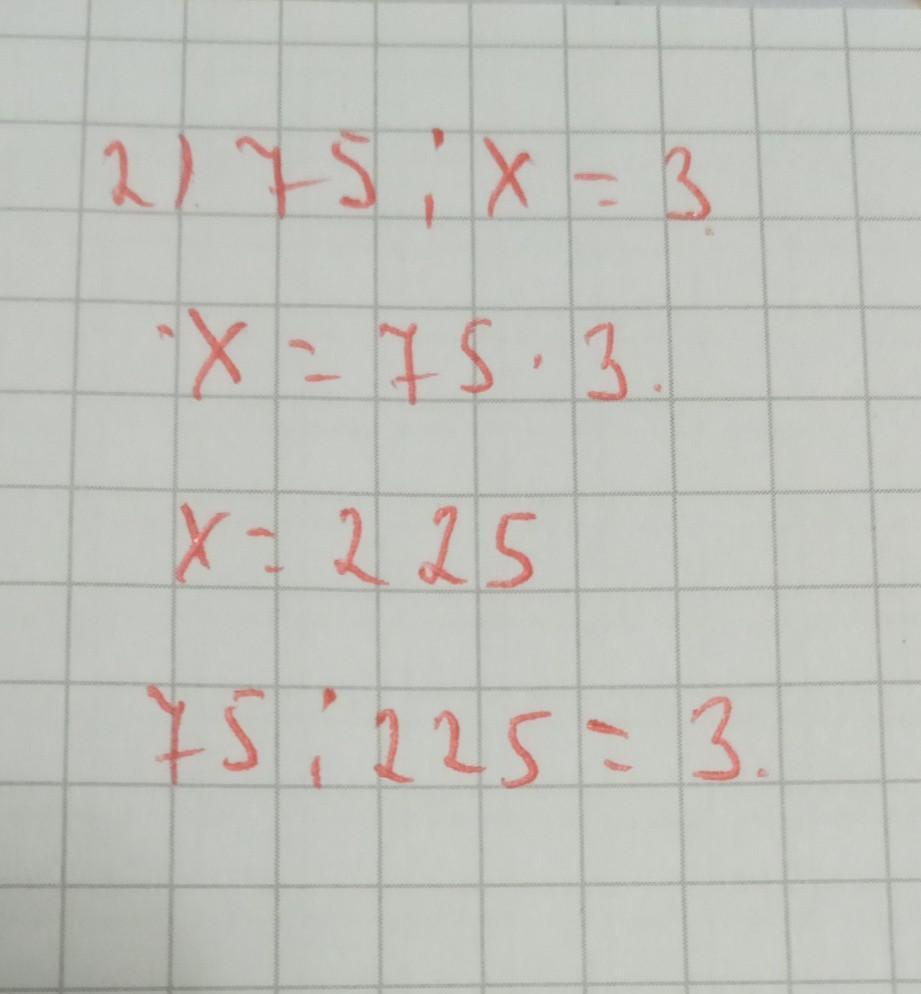 2) 75 : x = 3.
x = 75 · 3.
x = 225
75 : 225 = 3.